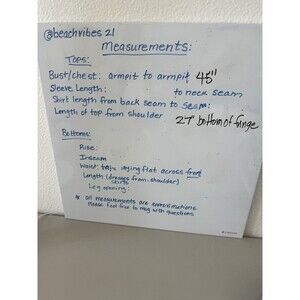 @beachvibes21
Measurements:
Tops:
Bust/chest: armpit to armpit 45"
Sleeve Length: to neck seam
Shirt length from back seam to seam:
Length of top from shoulder 27 bottom of fringe
Bottoms:
Rise:
Inseam
Waist: laying flat across front
Length (dresses from shoulder)
Leg opening:
* all measurements are approximations
Please feel free to msg with questions